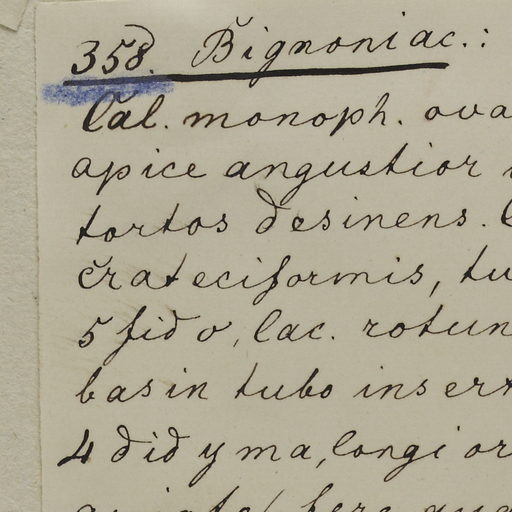 358. Bignoniac.:
Cal. monoph. ova
apice angustior
tortos desinens.
crateciformis, tu
5 fido, lac. rotun
basin tubo insert
4 didyma, longior
fere